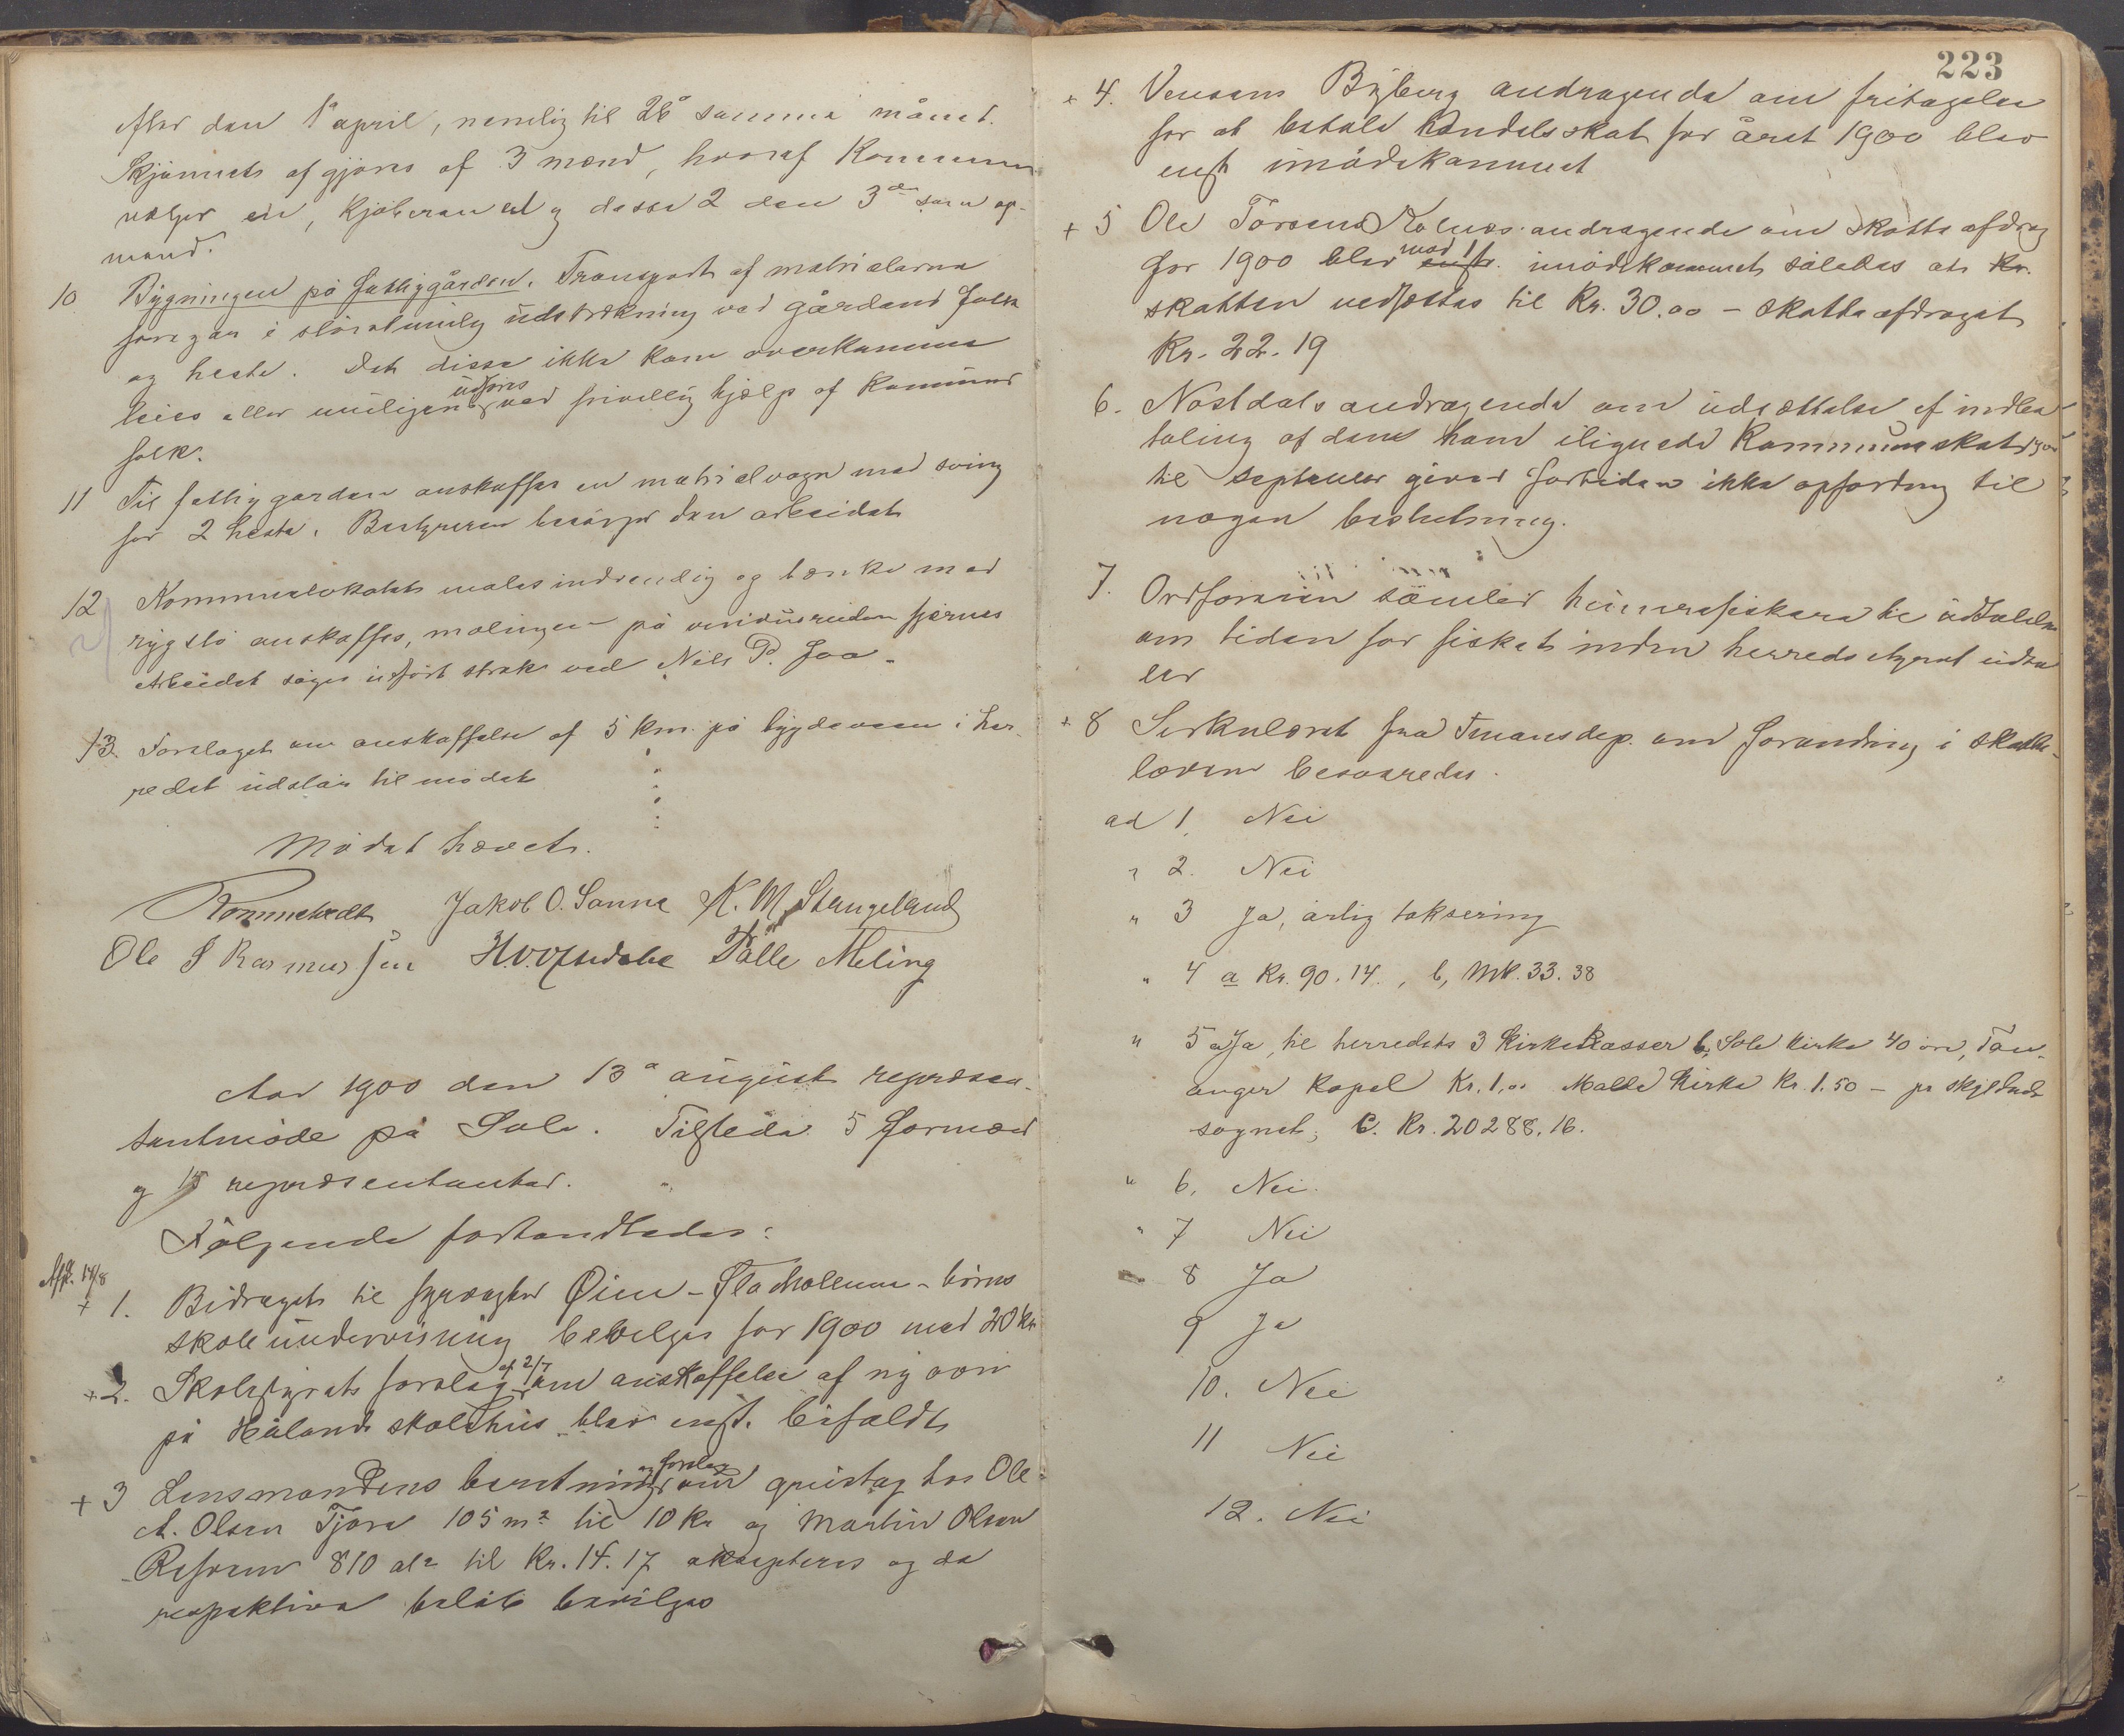 efter den 1ª april, nemlig til 26ª samme månet.
Skjønnets afgjøres af 3 mænd, hvoraf Kommunen
vælger en, Kjøberen en og disse 2 den 3de som op-
mand.
10 Bygningen på fattiggården. Transport af materialerne
foregår i størstmulig udstrækning ved gårdens folk
og heste. Det disse ikke kan overkomme
leies eller muligens udføres ved frivillig hjælp af Kommunens
folk.
11 Til fattiggården anskaffes en matrialvogn med sving
for 2 heste. Bestyreren besørger den arbeidet
12 Kommunelokalet males indvendig og bænke med
rygstø anskaffes, malingen på vinduruden fjernes
Arbeidet søges udført strak ved Nils P. Joa.
13. Forslaget om anskaffelse af 5 km. på bygdeveien i her-
redet udstår til mødet
Mødet hævet.
Rommetvedt Jakob O. Sanne K. M. Stangeland
Ole S Rasmussen Tølle Meling
Aar 1900 den 13ª august repræsen-
tantmøde på Sola. Tilstede 5 formænd
og 15 repræsentanter.
Følgende forhandledes:
Afsk. 14/8
+ 1. Bidraget til fyrvogter Øien - Flatholmen - børns
skoleundervisning bevilges for 1900 med 20 kr
+ 2. Skolestyrets forslag af 2/7 om anskaffelse af ny ovn
på Håland skolehus blev enst. bifaldt
+ 3 Lensmandens beretning og forslag om grustag hos Ole
A. Olsen Tjora 105 m² til 10 kr og Martin Olsen
Ræfsnes 810 al² til Kr. 14.17 aksepteres og de
respektive beløb bevilges
223
+ 4. Byberg andragende om fritagelse
for at betale Handelsskat for året 1900 blev
enst imødekommet
+ 5 Ole Torsens Kolnes andragende om skatteafdrag
for 1900 blev enst. mod 1 st. imødekommet således at Kr.
skatten nedsættes til Kr. 30.00 - skatteafdraget
Kr. 22.19
6. Nostdals andragende om udsættelse af indbe-
taling af den ham ilignede Kommuneskat 1900
til september giver fortiden ikke opfordring til
nogen beslutning.
7. Ordføreren samler hummerfiskere til udtalelse
om tiden for fisket inden herredsstyret udta-
ler
+ 8 Sirkulæret fra Finansdep. om forandring i skatte-
loven besvaredes.
ad 1. Nei
" 2. Nei
" 3 Ja, årlig taksering
" 4 a Kr. 90.14., b, Mk. 33.38
" 5 a Ja, til herredets 3 Kirkekasser b, Sole Kirke 40 øre, Tan-
anger Kapel Kr. 1,00 Malle Kirke Kr. 1.50 - pr skyldmk
sognet; C. Kr. 20288.16.
" 6. Nei.
" 7 Nei
" 8 Ja
9 Ja
10. Nei
11 Nei
12. Nei